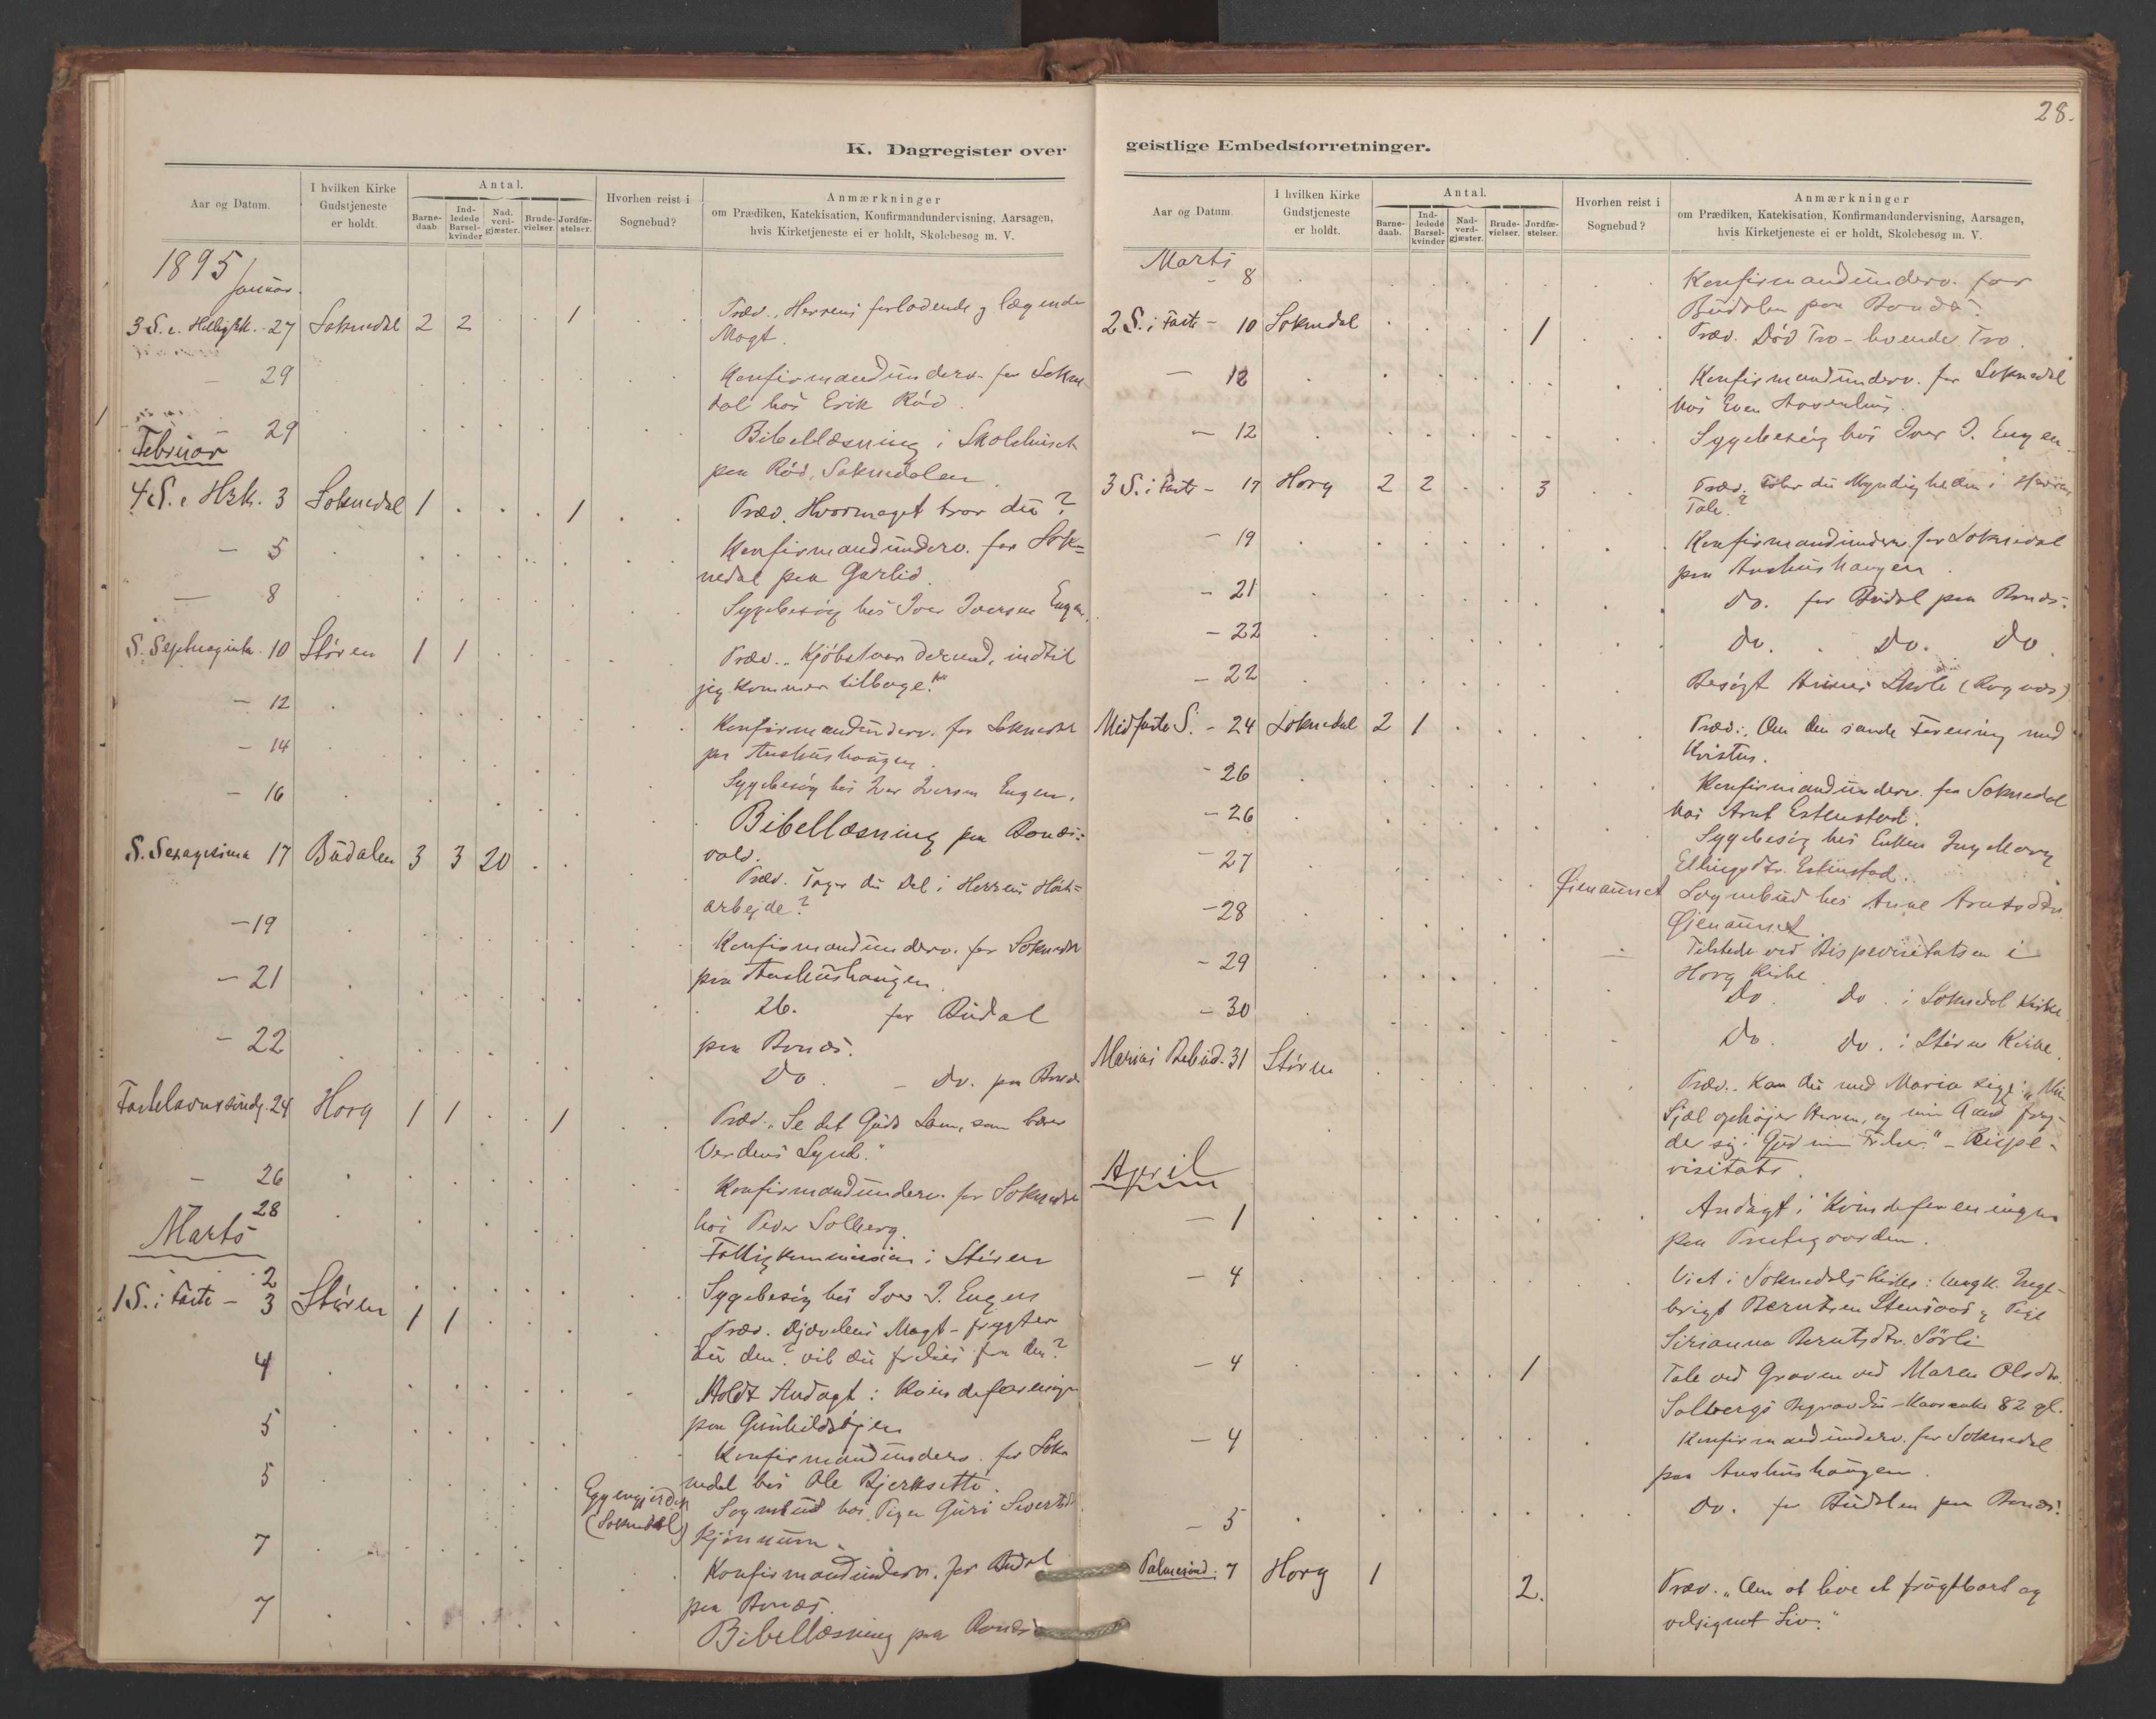 28.
K. Dagregister over
Aar og Datum.
I hvilken Kirke
Gudstjeneste
er holdt.
Antal.
Barne-
daab.
Ind-
ledede
Barsel-
kvinder
Nad.
verd-
gjæster.
Brude-
vielser.
Jordfæ-
stelser.
Hvorhen reist i
Sognebud?
Anmærkninger
om Prædiken, Katekisation, Konfirmandundervisning, Aarsagen,
hvis Kirketjeneste ei er holdt, Skolebesøg m. V.
1895
Januar.
3 S. e. Helligtrk. 27 Soknedal 2 2 1 Præd. Herrens forladende og lægende
Magt.
- 29 Konfirmandunderv. for Sokne
dal hos Erik Rød.
- 29 Bibellæsning i Skolehuset
paa Rød, Soknedalen.
Februar
4 S. e. H3k. 3 Soknedal 1 1 Præd. Hvormeget tror du?
- 5 Konfirmandunderv. for Sok=
nedal paa Garlid.
- 8 Sygebesøg hos Iver Iversen Engen.
S. Septuagesima. 10 Støren 1 1 Præd. "Kjøbslaar dermed, indtil
jeg kommer tilbage!"
- 12 Konfirmandunderv. for Soknedal
paa Aushushaugen.
- 14 Sygebesøg hos Iver Iversen Engen.
- 16 Bibellæsning paa Bonæs=
vold.
S. Sexagesima 17 Budalen 3 3 20 Præd. Tager du Del i Herrens Høst=
arbejde?
- 19 Konfirmandunderv. for Soknedal
paa Aushushaugen.
- 21 for Budal
paa Bonæs.
- 22 Do. - Do. paa Bonæs
Fastelavnssøndg. 24 Horg 1 1 1 Præd. "Se det Guds Lam, som bærer
Verdens Synd."
- 26 Konfirmandunderv. for Soknedal
hos Peder Solberg.
28 Fattigkommission i Støren
Marts
2 Sygebesøg hos Iver I. Engen
1 S. i Faste - 3 Støren 1 1 Præd. Djævelens Magt - frygter
du den? vil du frelses fra den?
4 Holdt Andagt i Kvindeforeningen
paa Gunhildsøyen
5 Konfirmandunderv. for Sok
nedal hos Ole Bjerksette.
5 Eggengjerdet
(Soknedal) Sognebud hos Pigen Guri Sivertsdtr.
Kjønnum.
7 Konfirmandunderv. for Budal
paa Bonæs.
7 Bibellæsning paa Bonæs
geistlige Embedsforretninger.
Aar og Datum.
I hvilken Kirke
Gudstjeneste
er holdt.
Antal.
Barne-
daab.
Ind-
ledede
Barsel-
kvinder
Nad-
verd-
gjæster.
Brude-
vielser.
Jordfæ-
stelser.
Hvorhen reist i
Sognebud?
Anmærkninger
om Prædiken, Katekisation, Konfirmandundervisning, Aarsagen,
hvis Kirketjeneste ei er holdt, Skolebesøg m. V.
Marts
- 8 Konfirmandunderv. for
Budalen paa Bonæs.
2 S. i Faste - 10 Soknedal 1 Præd. Død Tro - levende Tro.
- 12 Konfirmandunderv. for Soknedal
hos Even Aasenhus.
- 12 Sygebesøg hos Iver I. Engen.
3 S. i Faste - 17 Horg 2 2 3 Præd. Føler du Myndigheden i Herrens
Tale?
- 19 Konfirmandunderv. for Soknedal
paa Aushushaugen.
- 21 Do. for Budal paa Bonæs.
- 22 Do. Do. Do.
- 22 Besøgt Skole (Rognæs)
Midfaste S. - 24 Soknedal 2 1 Præd.: Om den sande Forening med
Kristus.
- 26 Konfirmandunderv. for Soknedal
hos Arnt Estenstad.
- 26 Sygebesøg hos Enken
Ellingsdtr. Estenstad.
- 27 Øienaunet Sognebud hos Anne Arntsdtr.
Øienaunet.
- 28 Tilstede ved Bispevisitatsen i
Horg Kirke
- 29 Do. Do. i Soknedal Kirke
- 30 Do. Do. i Støren Kirke.
Mariæ Bebud. 31 Støren Præd. Kan du med Maria sige: "Min
Sjæl ophøjer Herren, og min Aand fryg-
der sig i Gud min Frelser." - Bispe-
visitats.
April
- 1 Andagt i Kvindeforeningen
paa Prestegaarden.
- 4 Viet i Soknedals Kirke: Ungk. Inge-
brigt Berntsen Stensaas og Pige
Sirianna Berntsdtr. Sørli
- 4 1 Tale ved Graven ved Maren Olsdtr.
Solbergs Begravelse - Kaarenke 82 gl.
- 4 Konfirmandunderv. for Soknedal
paa Aushushaugen.
- 5 Do. for Budalen paa Bonæs.
Palmesønd. 7 Horg 1 2. Præd. "Om at leve et frugtbart og
velsignet Liv."